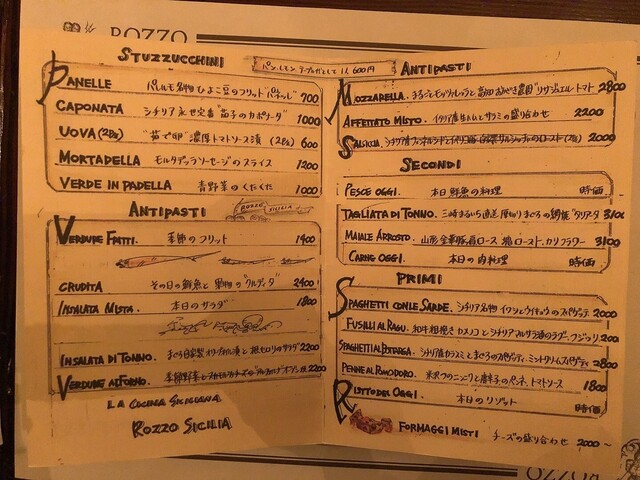 ROZZO
STUZZUCCHINI
PANELLE パレルモ名物 ひよこ豆のフリット"パネッレ" 700
CAPONATA シチリア 永世定番 "茄子のカポナータ" 1000
UOVA (2個) "茹で卵" 濃厚トマトソース漬 (2個) 600
MORTADELLA モルタデッラソーセージのスライス 1200
VERDE IN PADELLA 青野菜のくたくた 1000
ANTIPASTI
ROZZO SICILIA
VERDURE FRITTI. 季節のフリット 1400
CRUDITA その日の鮮魚と果物の"クルディタ" 2400
INSALATA MISTA. 本日のサラダ 1800
INSALATA DI TONNO. まぐろ自家製オリーブオイル漬と根セロリのサラダ 2200
VERDURE AL FORNO. 2200
LA CUCINA SICILIANA
ROZZO SICILIA
パン、レモン、テーブル代として 1人 600円
ANTIPASTI
MOZZARELLA. まるごとモッツァレッラと高知 トマト 2800
AFFETTATO MISTO. イタリア産生ハムとサラミの盛り合わせ 2200
SALSICCIA. のロースト (2P) 2000
SECONDI
PESCE OGGI. 本日鮮魚の料理 時価
TAGLIATA DI TONNO. 三崎まるいち直送 厚切りまぐろの "タリアータ" 3100
MAIALE ARROSTO. 山形 金華豚 肩ロース 塊ロースト. カリフラワー 3100
CARNE OGGI. 本日の肉料理 時価
PRIMI
SPAGHETTI CON LE SARDE. シチリア名物 イワシとウイキョウのスパゲッティ 2000
FUSILLI AL RAGU. 和牛粗挽き とシチリアマルサラ酒のラグー. フジッリ 200
SPAGHETTI BOTTARGA. シチリア産カラスミとまぐろのスパゲティ. ミント 2800
PENNE AL POMODORO. 米沢 のニンニクと唐辛子のペンネ、トマトソース 1800
RISOTTO DEL OGGI. 本日のリゾット 時価
FORMAGGI MISTI チーズの盛り合わせ 2000～
ROZZO